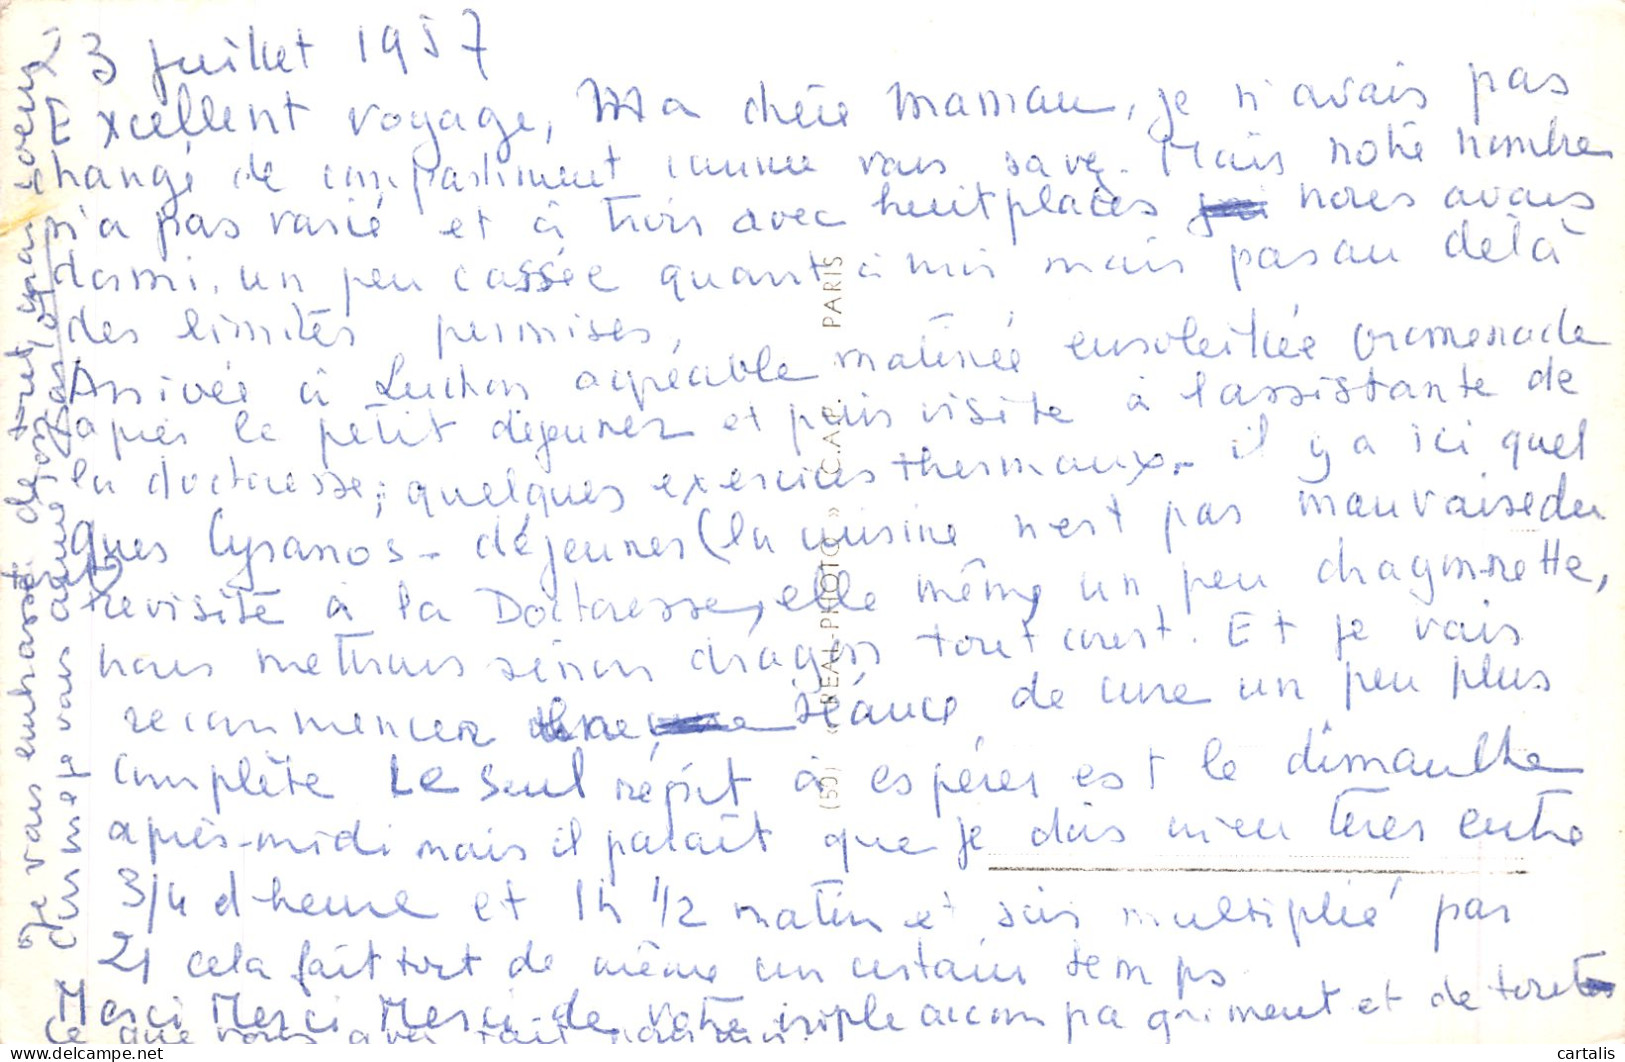 3 Juillet 1957
Excellent voyage, Ma chère Maman, je n'avais pas
changé de compartiment comme vous savez. Mais notre nombre
n'a pas varié et à trois avec huit places nous avons
dormi, un peu cassée quant à moi mais pas au delà
des limites permises,
Arrivée à Luchon agréable matinée ensoleillée promenade
après le petit déjeuner et puis visite à l'assistante de
la doctoresse; quelques exercices thermaux. il y a ici quel
ques Cyranos - déjeuner (la cuisine n'est pas mauvaise du
tt) revisite à la Doctoresse, elle même un peu dragonnette,
nous mettrons sinon dragon tout court. Et je vais
recommencer séance de cure un peu plus
complète Le seul répit à espérer est le dimanche
après-midi mais il paraît que je dois m'en tirer entre
3/4 d'heure et 1h 1/2 matin et soir multiplié par
21 cela fait tout de même un certain temps
Merci Merci Merci de votre triple accompagnement et de toute
ce que vous avez fait
Je vous embrasse de tout mon coeur
comme je vous aime
(50) « REAL-PHOTO » C.A.P. PARIS
cartalis